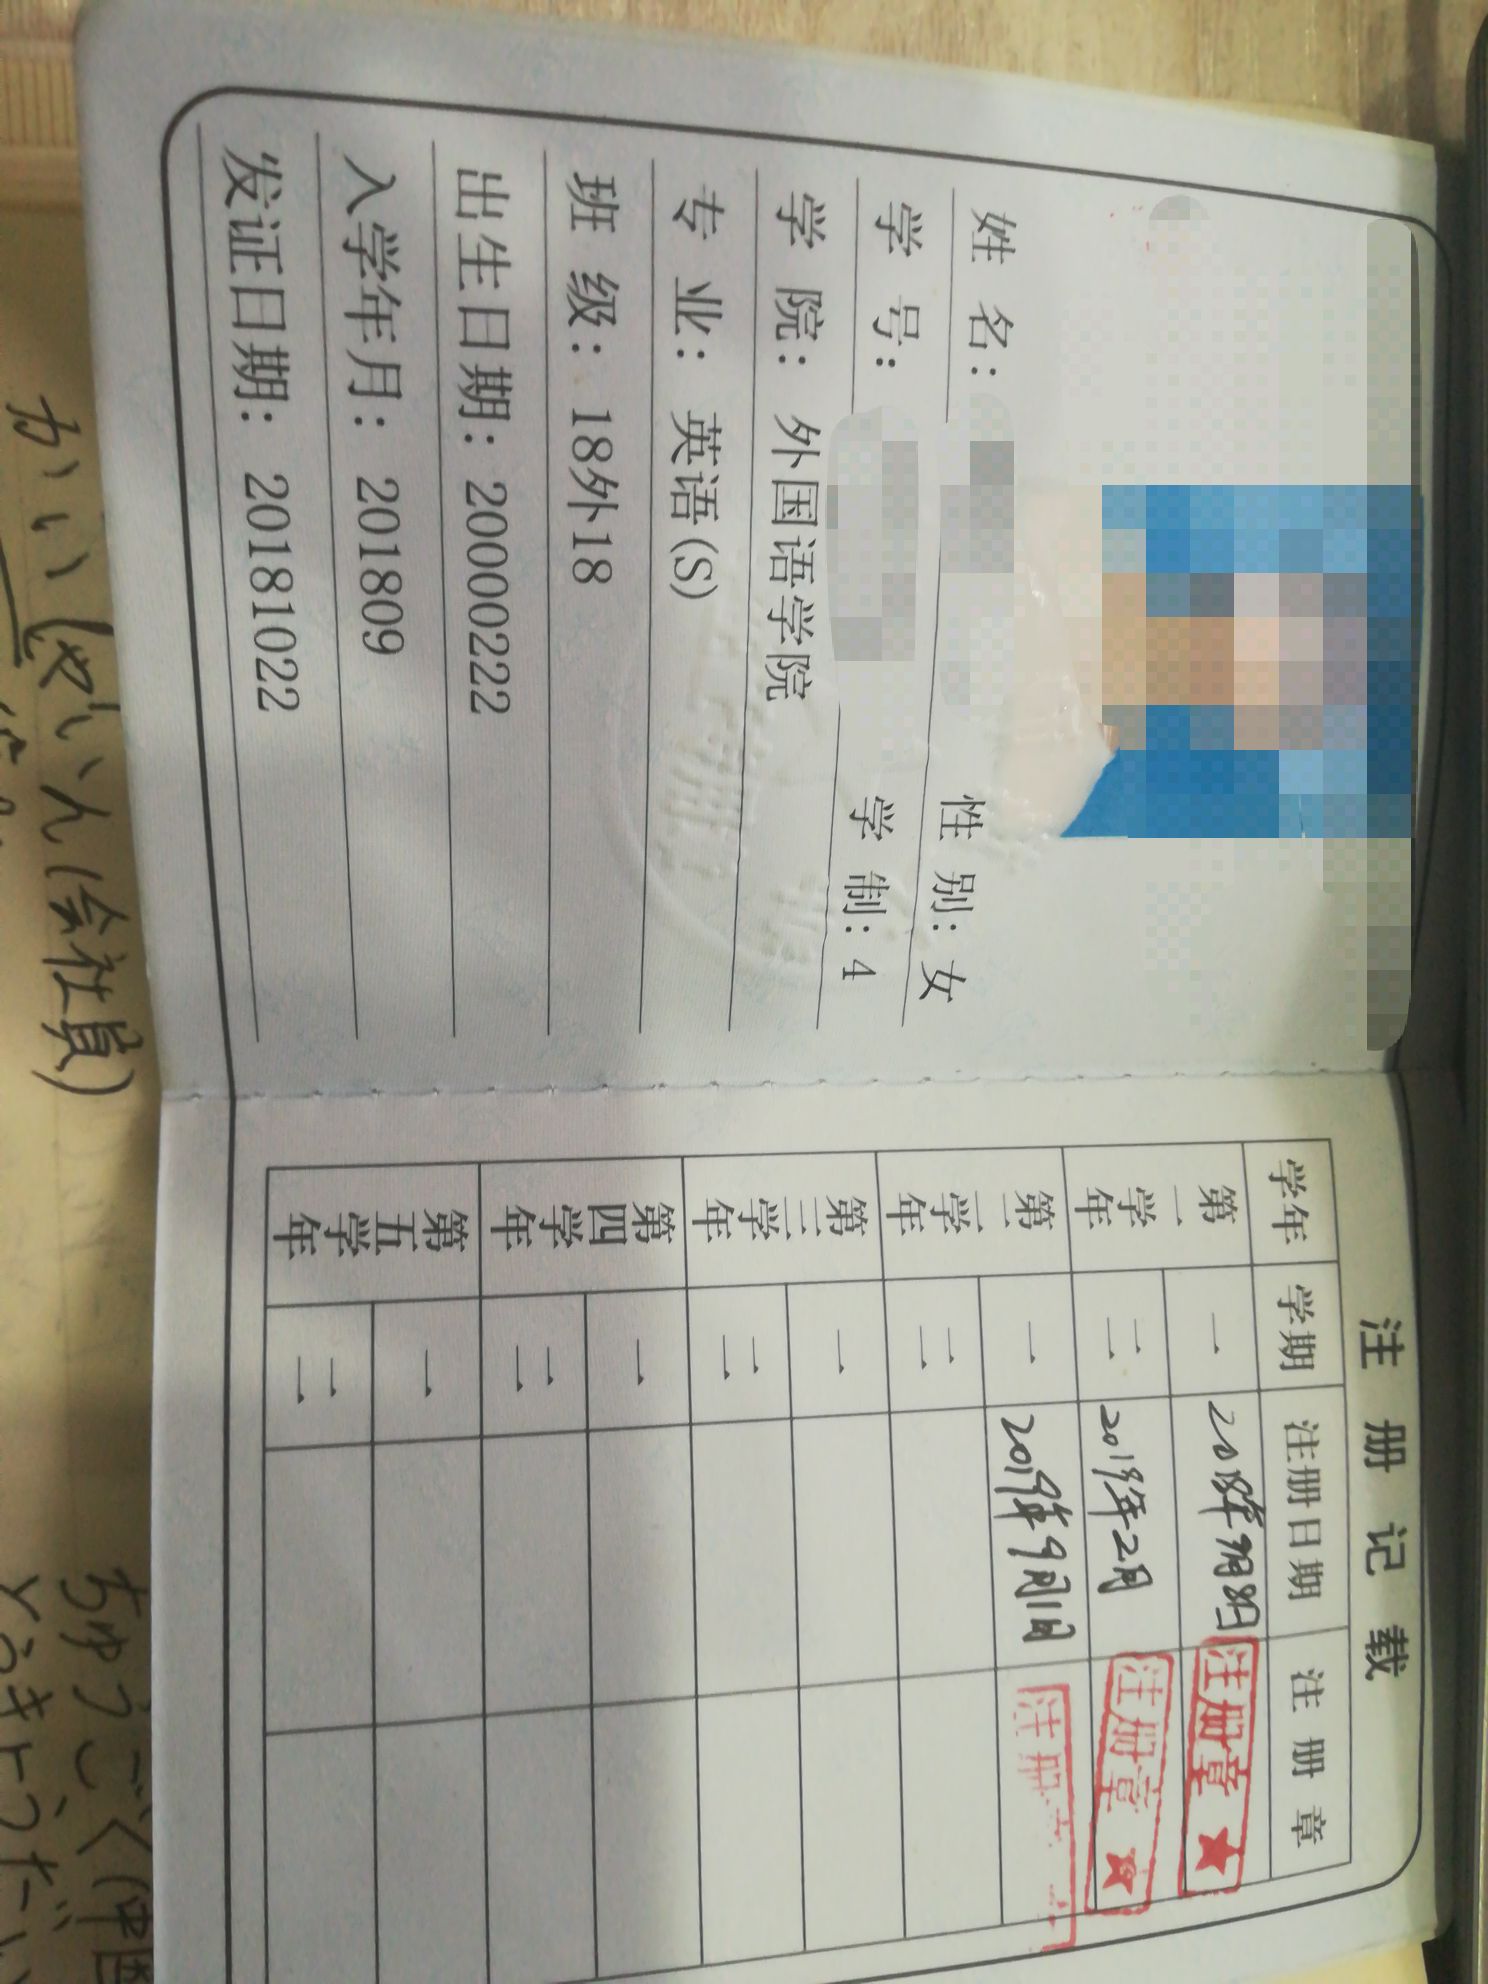 姓 名: 性 别: 女
学 号: 学 制: 4
学 院: 外国语学院
专 业: 英语(S)
班 级: 18外18
出生日期: 20000222
入学年月: 201809
发证日期: 20181022
注 册 记 载
学年 学期 注册日期 注 册 章
第一学年 一 2018年9月8日 注册章
二 2019年2月 注册章
第二学年 一 2019年9月1日 注册
二
第三学年 一
二
第四学年 一
二
第五学年 一
二
かいしゃいん(会社員)
ちゅうごく(中国